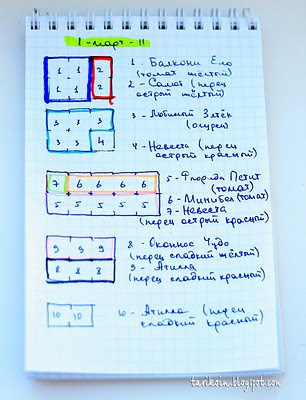 1 - март - 11
1 1 2
1 1 2
1 - Балкони Ело
(томат жёлтый)
2 - Салют (перец
острый жёлтый)
3 3 3
3 3 4
3 - Любимый Зятёк
(огурец)
4 - Невеста (перец
острый красный)
7 6 6 6 6
5 5 5 5 5
5 - Флорида Петит
(томат)
6 - Минибел (томат)
7 - Невеста
(перец острый красный)
9 9 9
8 8 8
8 - Оконное Чудо
(перец сладкий жёлтый)
9 - Атилла
(перец сладкий красный)
10 10
10 - Атилла (перец
сладкий красный)
tarikoin.blogspot.com